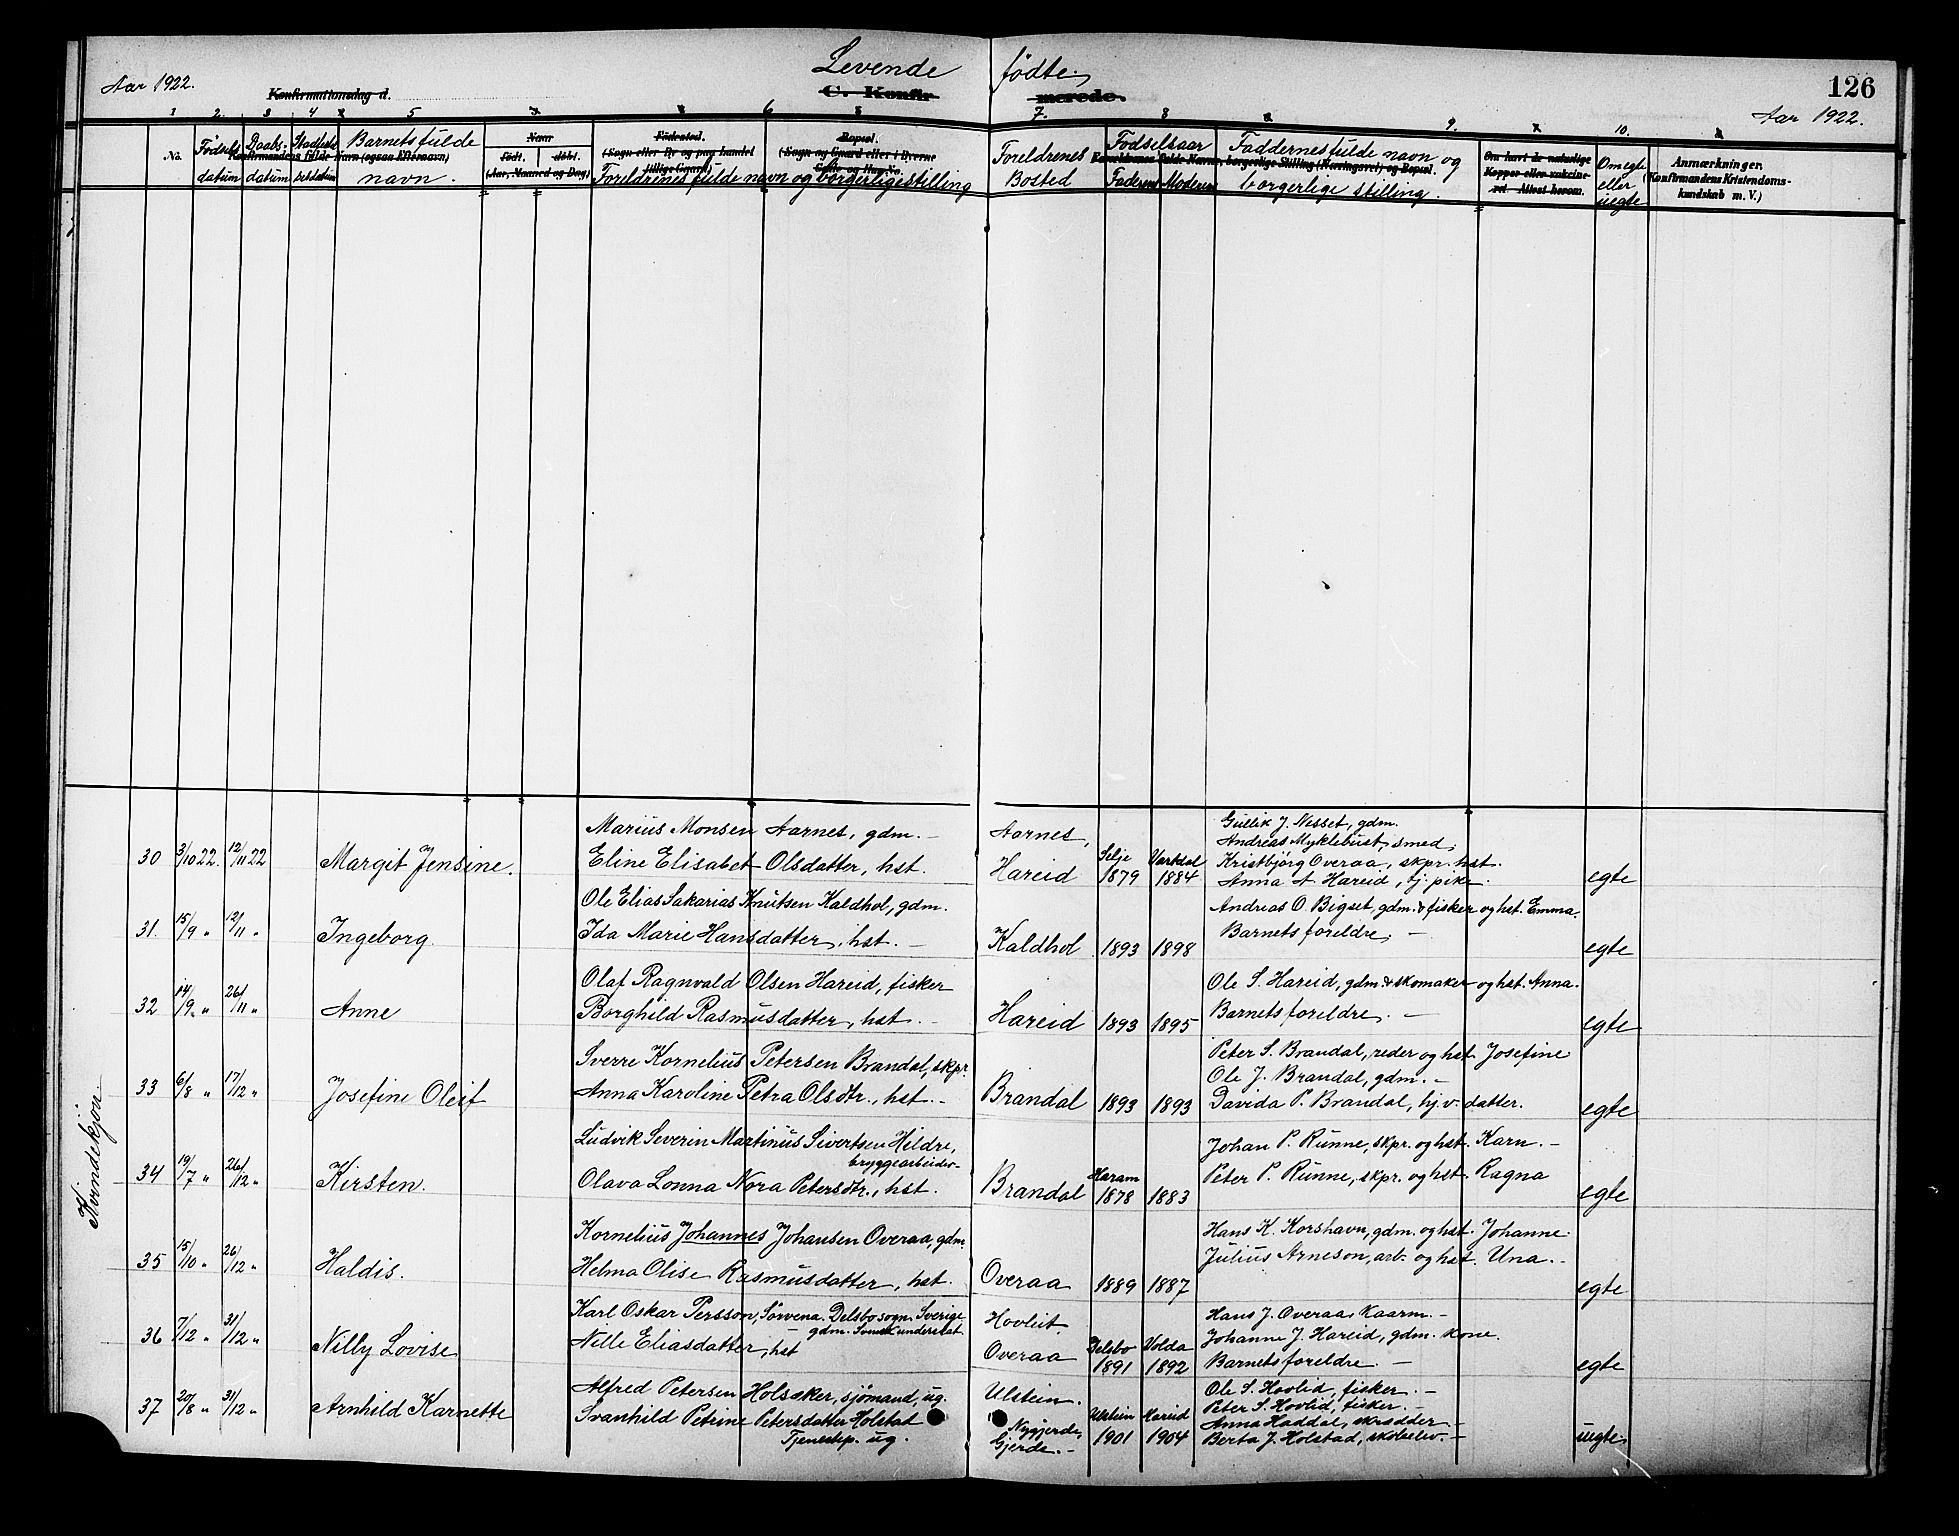 Levende fødte.
Aar 1922.
Konfirmationsdag d.
C. Konfir merede.
126
Aar 1922.
1 2. 3 4 5 6 7. 8 9. 10.
No. Fødsels datum Daabs- datum Barnets fulde navn. Foreldrenes fulde navn og borgerlige stilling Foreldrenes Bosted Fødselsaar Faderens Moderens Faddernes fulde navn og borgerlige stilling. Om egte eller uegte
Konfirmandens fulde Navn (ogsaa Efternavn)
Naar
født. døbt.
(Aar, Maaned og Dag)
Fødested.
(Sogn eller By og paa Landet tillige Gaard)
Bopæl.
(Sogn og Gaard eller i Byerne Gade og Hus-No.
Forældrenes fulde Navne, borgerlige Stilling (Næringsvei) og Bopæl.
Om havt de naturlige Kopper eller vakcineret. Attest herom.
Anmærkninger.
(Konfirmandens Kristendomskundskab m. V.)
Kvindekjøn.
Marius Monsen Aarnes, gdm. – Aarnes, Gullik J. Nesset, gdm.
Andreas Myklebust, smed,
30 3/10 22. 12/11 22 Margit Jensine. Eline Elisabet Olsdatter, hst. Hareid Selje 1879 Vartdal 1884 Kristbjørg Overaa, skpr. hst. egte
Anna A. Hareid, tj. pike.
Ole Elias Sakarias Knutsen Kaldhol, gdm. Andreas O. Bigset, gdm. & fisker og hst. Emma.
31. 15/9 " 12/11 " Ingeborg. Ida Marie Hansdatter, hst. – Kaldhol 1893 1898 Barnets foreldre. – egte
Olaf Ragnvald Olsen Hareid, fisker Ole S. Hareid, gdm. & skomaker og hst. Anna.
32 14/9 " 26/11 " Anne Borghild Rasmusdatter, hst. – Hareid 1893 1895 Barnets foreldre. – egte
Sverre Kornelius Petersen Brandal, skpr. Peter S. Brandal, reder og hst. Josefine
Ole J. Brandal, gdm. –
33 6/8 " 17/12 " Josefine Oleif Anna Karoline Petra Olsdtr., hst. – Brandal 1893 1893 Davida P. Brandal, hj.v. datter. egte
Ludvik Severin Martinus Sivertsen Hildre, bryggearbeider Johan P. Runne, skpr. og hst. Karn. –
34 19/7 " 26/12 " Kirsten. Olava Lonna Nora Petersdtr., hst. Brandal Haram 1878 1883 Peter P. Runne, skpr. og hst. Ragna egte
Kornelius Johannes Johansen Overaa, gdm. Hans K. Korshavn, gdm. og hst. Johanne
35 15/10 " 26/12 " Haldis. Helma Olise Rasmusdatter, hst. Overaa 1889 1887 Julius Arneson, arb. og hst. Una. – egte
Karl Oskar Persson, Delsbo sogn. Sverige Hovleit. Hans J. Overaa Kaarm. –
gdm. Svensk undersaat. Johanne J. Hareid, gdm. kone.
36 7/12 " 31/12 " Nilly Lovise Nille Eliasdatter, hst Overaa Delsbo 1891 Volda 1892 Barnets foreldre. – egte
Alfred Petersen Holsæker, sjömand, ug. Ulstein. Ole S. Hovlid, fisker. –
Peter S. Hovlid, fisker. –
37 20/8 " 31/12 " Arnhild Karnette Svanhild Petrine Petersdatter Holstad Nygjerde, Ulstein 1901 Hareid 1904 Anna Haddal, skrædder –
Tjenestep. ug. Gjerde. – Berta J. Holstad, skoleelev. – uegte.